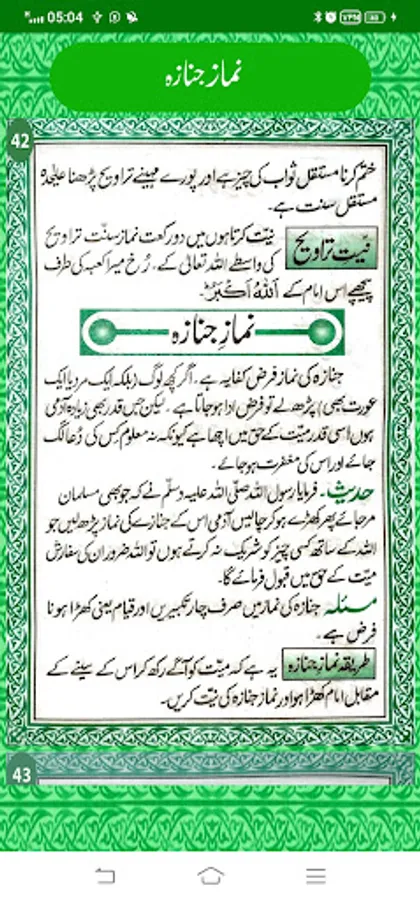 05:04
نماز جنازہ
42
ختم کرنا مستقل ثواب کی چیز ہے اور پورے مہینے تراویح پڑھنا علیحدہ
مستقل سنت ہے۔
نیتِ تراویح
نیت کرتا ہوں میں دو رکعت نماز سنّت تراویح
کی واسطے اللہ تعالیٰ کے، رُخ میرا کعبہ کی طرف
پیچھے اس امام کے اَللّٰهُ اَكْبَرُ۔
نمازِ جنازہ
جنازہ کی نماز فرض کفایہ ہے، اگر کچھ لوگ (بلکہ ایک مرد یا ایک
عورت بھی) پڑھ لے تو فرض ادا ہو جاتا ہے، لیکن جس قدر بھی زیادہ آدمی
ہوں اسی قدر میّت کے حق میں اچھا ہے کیونکہ نہ معلوم کس کی دُعا لگ
جائے اور اس کی مغفرت ہو جائے۔
حدیث۔ فرمایا رسول اللہ صلّی اللہ علیہ وسلّم نے کہ جو بھی مسلمان
مر جائے پھر کھڑے ہو کر چالیس آدمی اس کے جنازے کی نماز پڑھ لیں جو
اللہ کے ساتھ کسی چیز کو شریک نہ کرتے ہوں تو اللہ ضرور ان کی سفارش
میّت کے حق میں قبول فرمائے گا۔
مسئلہ جنازہ کی نماز میں صرف چار تکبیریں اور قیام یعنی کھڑا ہونا
فرض ہے۔
طریقہ نماز جنازہ
یہ ہے کہ میّت کو آگے رکھ کر اس کے سینے کے
مقابل امام کھڑا ہو اور نماز جنازہ کی نیت کریں۔
43